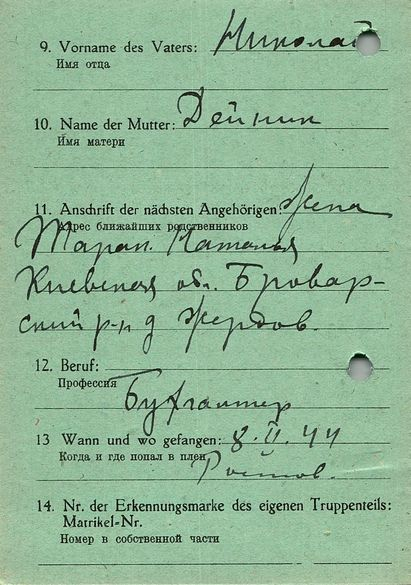 9. Vorname des Vaters: Николай
Имя отца
10. Name der Mutter: Дейник
Имя матери
11. Anschrift der nächsten Angehörigen: жена
Адрес ближайших родственников
Таран Наталья
Киевская обл. Бровар-
ский р-н д Жердов.
12. Beruf:
Профессия
Бухгалтер
13 Wann und wo gefangen: 8.II.44
Когда и где попал в плен
14. Nr. der Erkennungsmarke des eigenen Truppenteils:
Matrikel-Nr.
Номер в собственной части